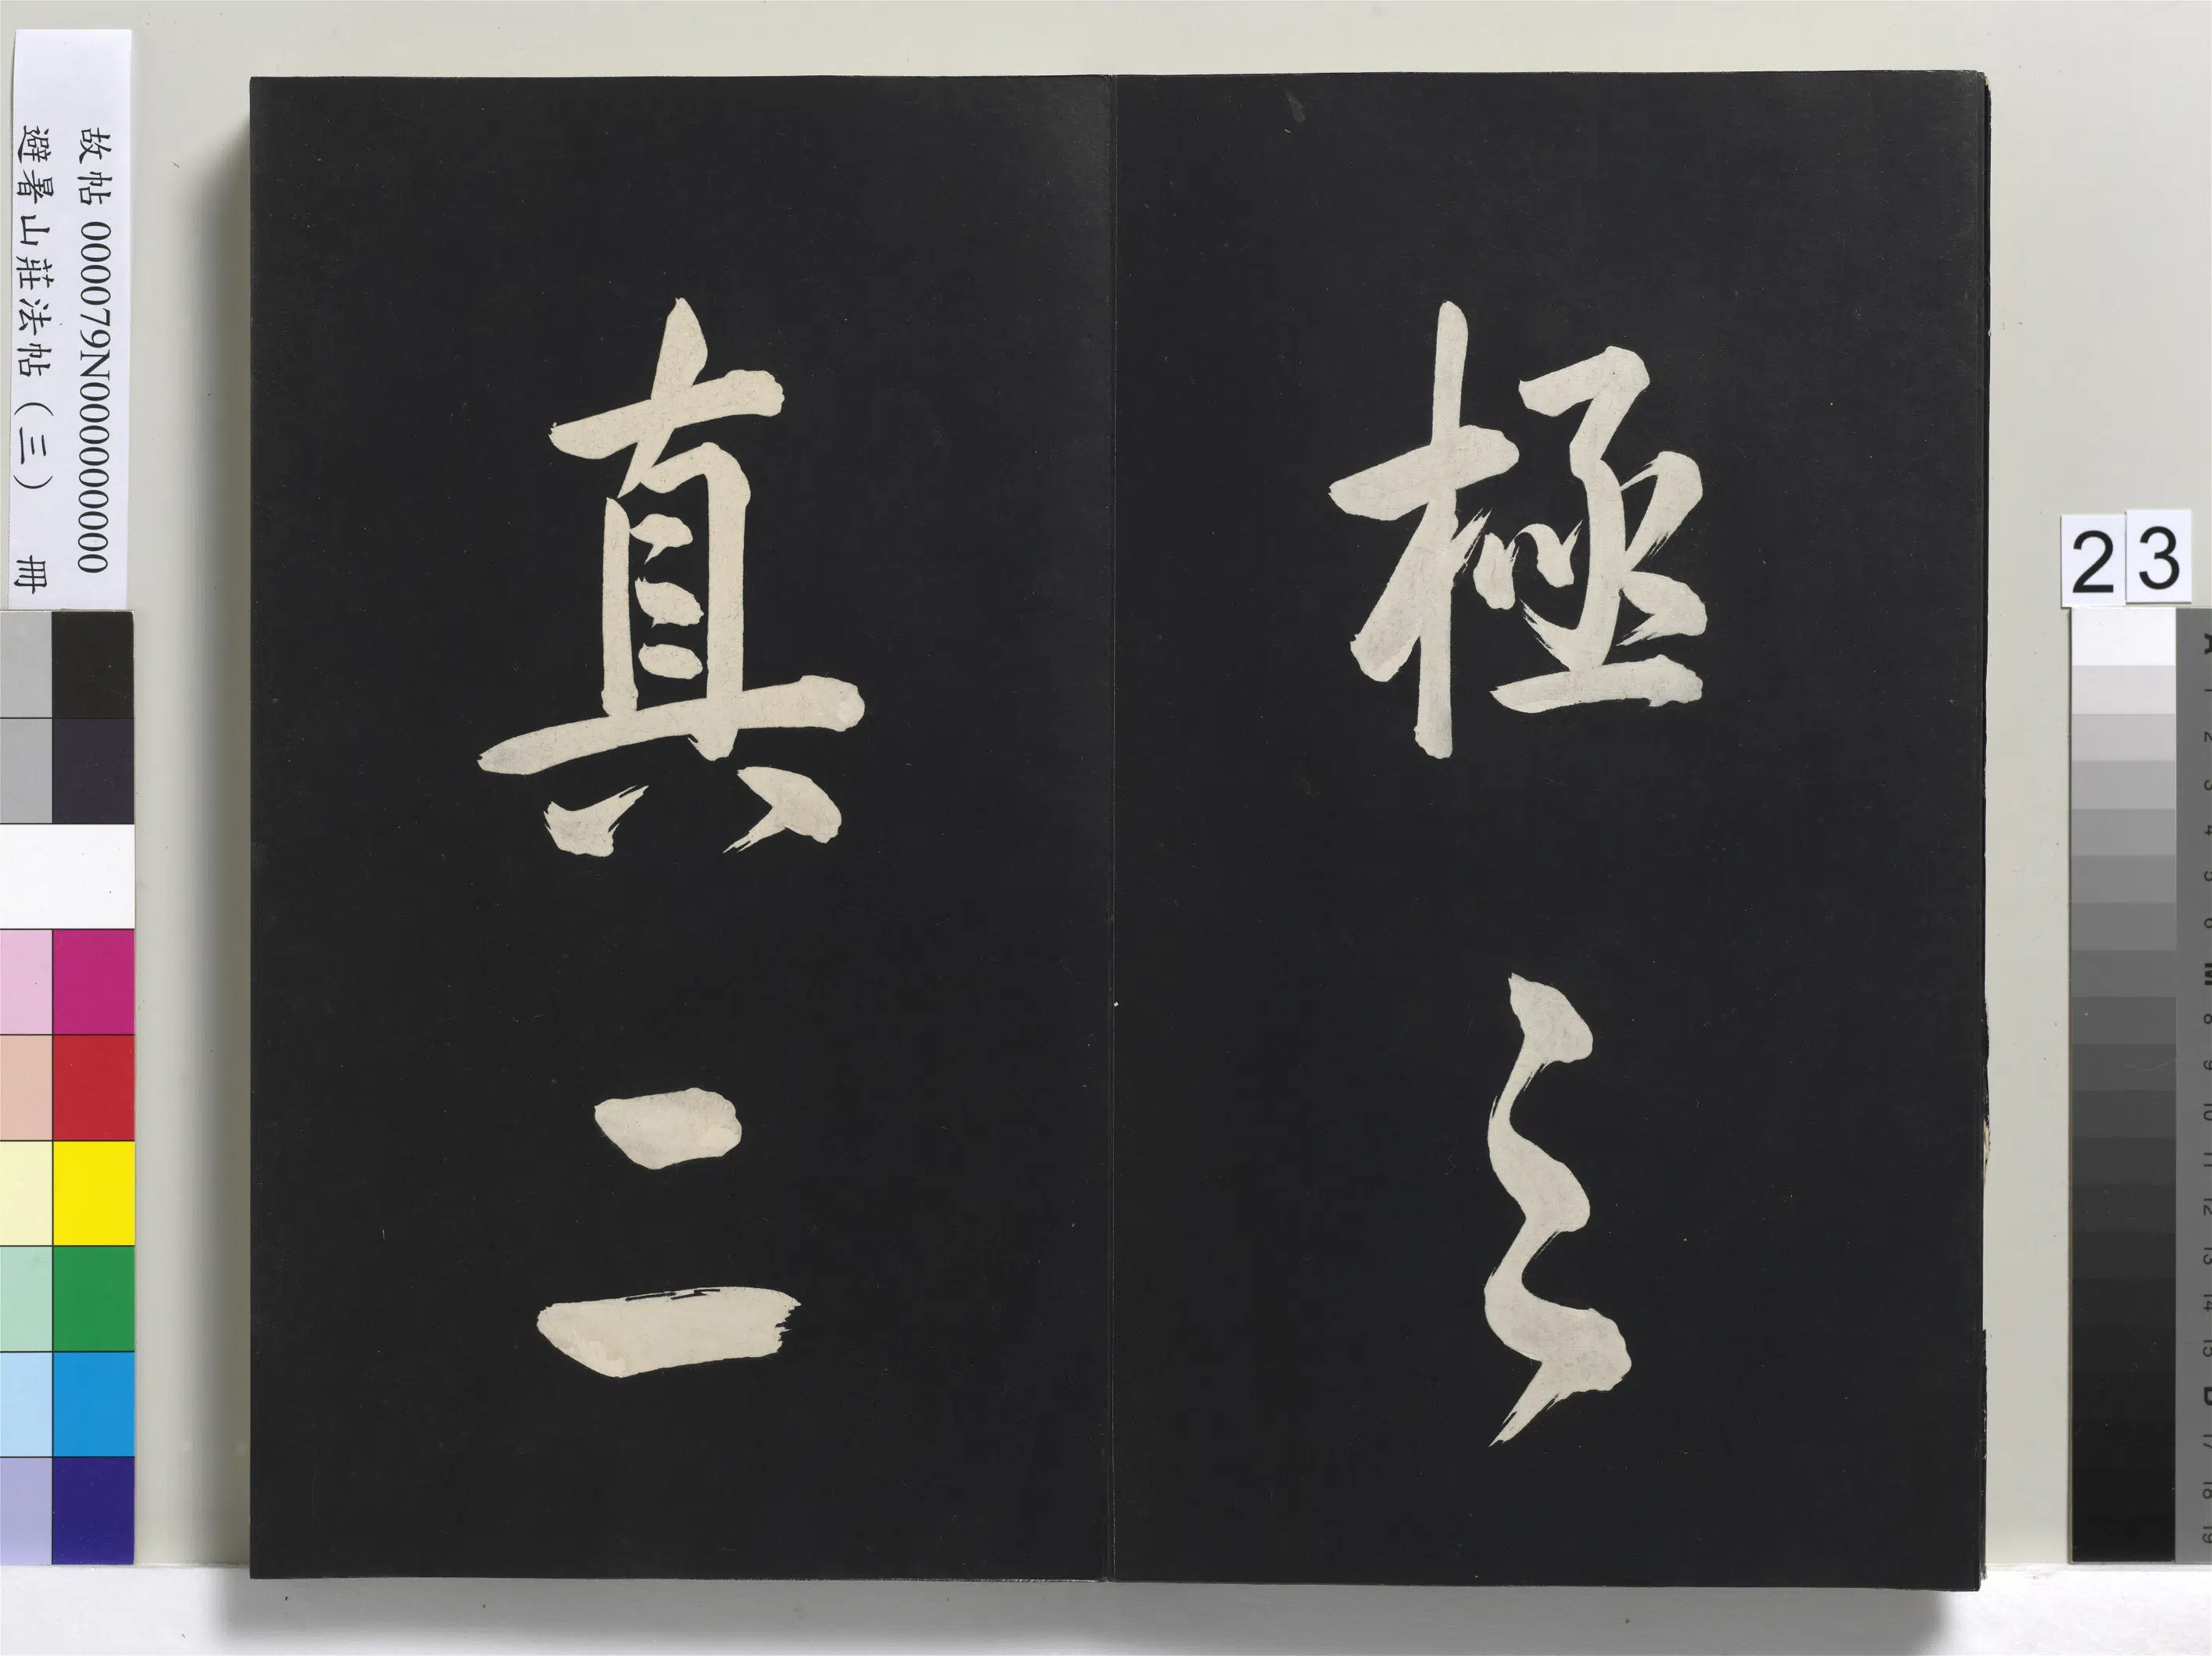 極之
真二
故帖 000079N000000000
避暑山莊法帖（三） 冊
23
A
1
2
3
4
5
6
M
8
9
10
11
12
13
14
15
B
17
18
19